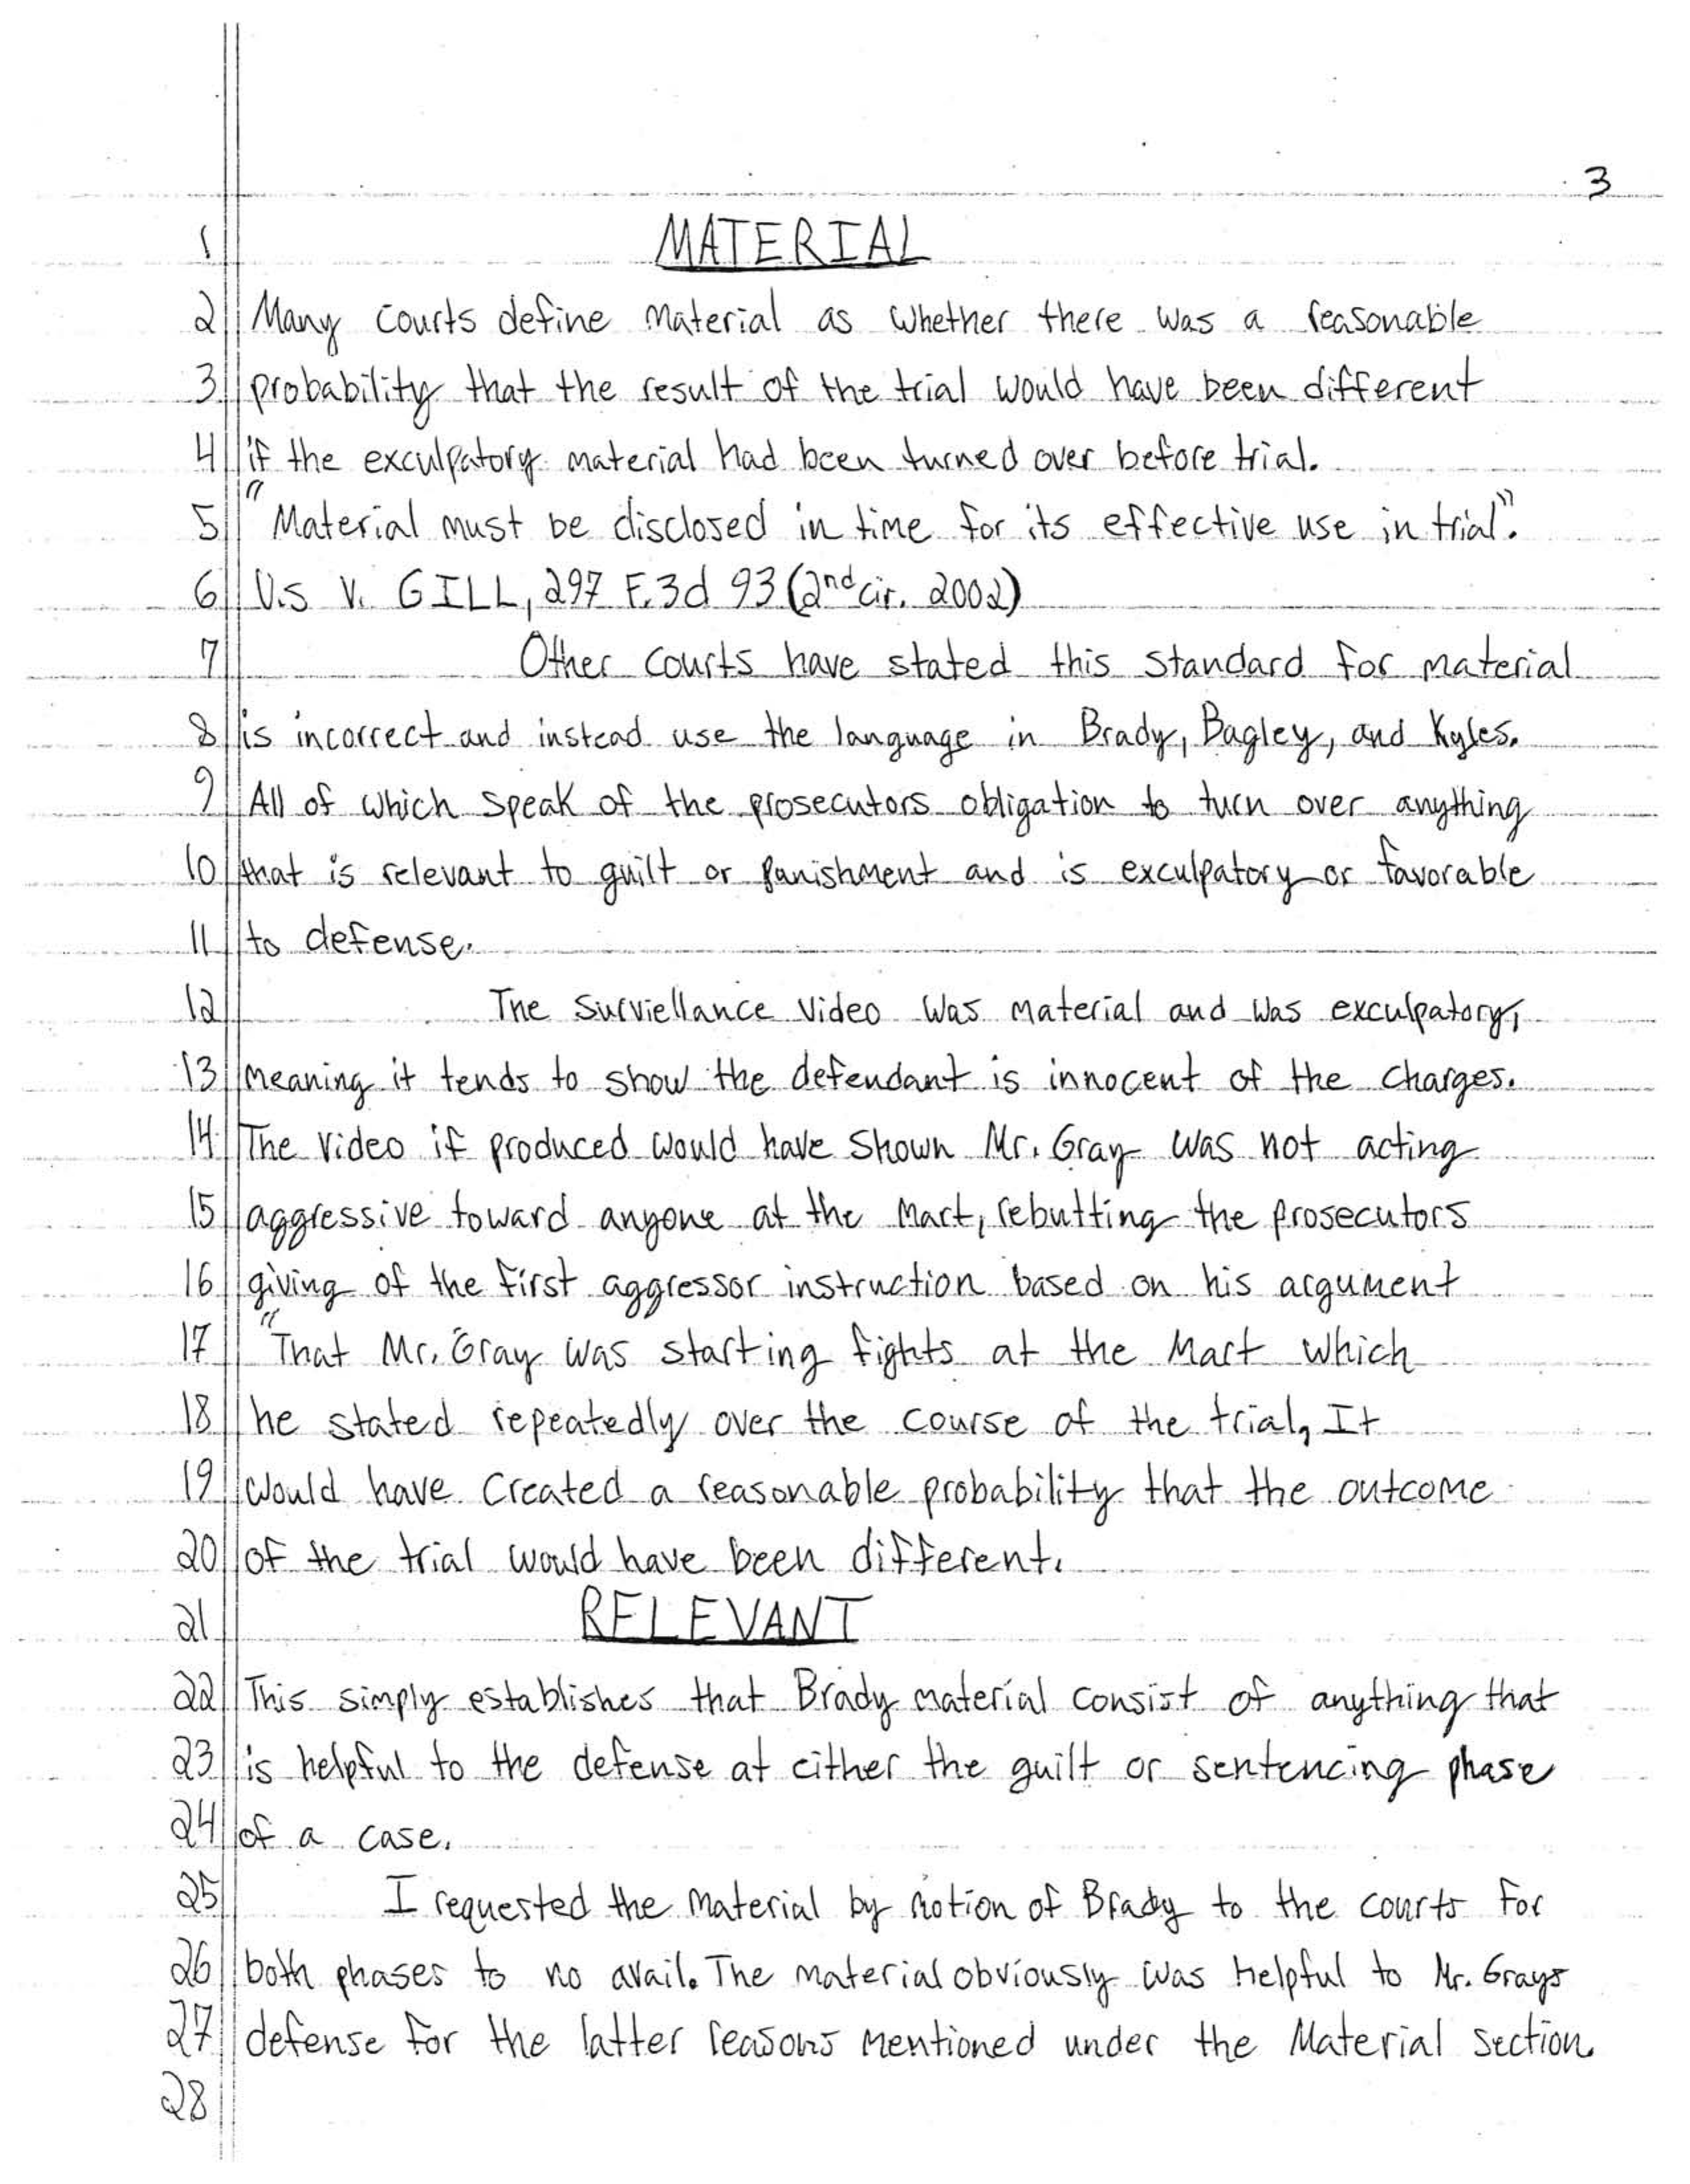 3
1 MATERIAL
2 Many courts define material as whether there was a reasonable
3 probability that the result of the trial would have been different
4 if the exculpatory material had been turned over before trial.
5 "Material must be disclosed in time for its effective use in trial".
6 U.S v. GILL, 297 F.3d 93 (2nd cir. 2002)
7 Other courts have stated this standard for material
8 is incorrect and instead use the language in Brady, Bagley, and Kyles.
9 All of which speak of the prosecutors obligation to turn over anything
10 that is relevant to guilt or punishment and is exculpatory or favorable
11 to defense.
12 The Surviellance video was material and was exculpatory,
13 meaning it tends to show the defendant is innocent of the charges.
14 The video if produced would have shown Mr. Gray was not acting
15 aggressive toward anyone at the Mart, rebutting the prosecutors
16 giving of the first aggressor instruction based on his argument
17 "That Mr. Gray was starting fights at the Mart which
18 he stated repeatedly over the course of the trial, It
19 would have created a reasonable probability that the outcome
20 of the trial would have been different.
21 RELEVANT
22 This simply establishes that Brady material consist of anything that
23 is helpful to the defense at either the guilt or sentencing phase
24 of a case.
25 I requested the material by motion of Brady to the courts for
26 both phases to no avail. The material obviously was helpful to Mr. Grays
27 defense for the latter reasons mentioned under the Material section.
28